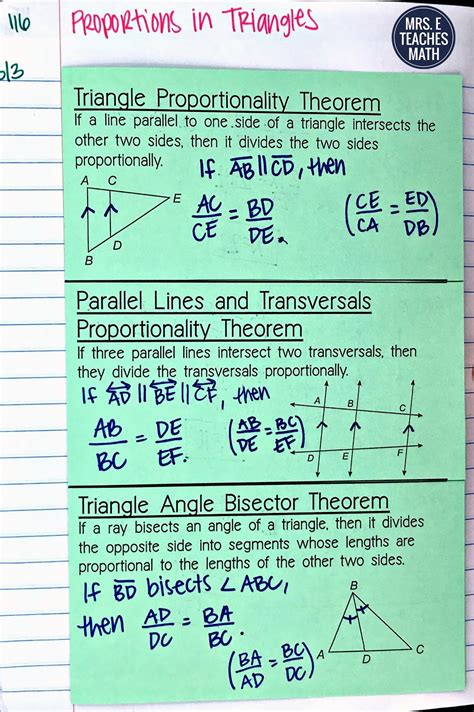 116
Proportions in Triangles
MRS. E
TEACHES
MATH
Triangle Proportionality Theorem
If a line parallel to one side of a triangle intersects the
other two sides, then it divides the two sides
proportionally.
If AB || CD, then
AC/CE = BD/DE.
(CE/CA = ED/DB)
A C
E
D
B
Parallel Lines and Transversals
Proportionality Theorem
If three parallel lines intersect two transversals, then
they divide the transversals proportionally.
If AD || BE || CF, then
AB/BC = DE/EF.
(AB/DE = BC/EF)
A B C
D E F
Triangle Angle Bisector Theorem
If a ray bisects an angle of a triangle, then it divides
the opposite side into segments whose lengths are
proportional to the lengths of the other two sides.
If BD bisects ∠ABC,
then AD/DC = BA/BC.
(BA/AD = BC/DC)
B
A D C